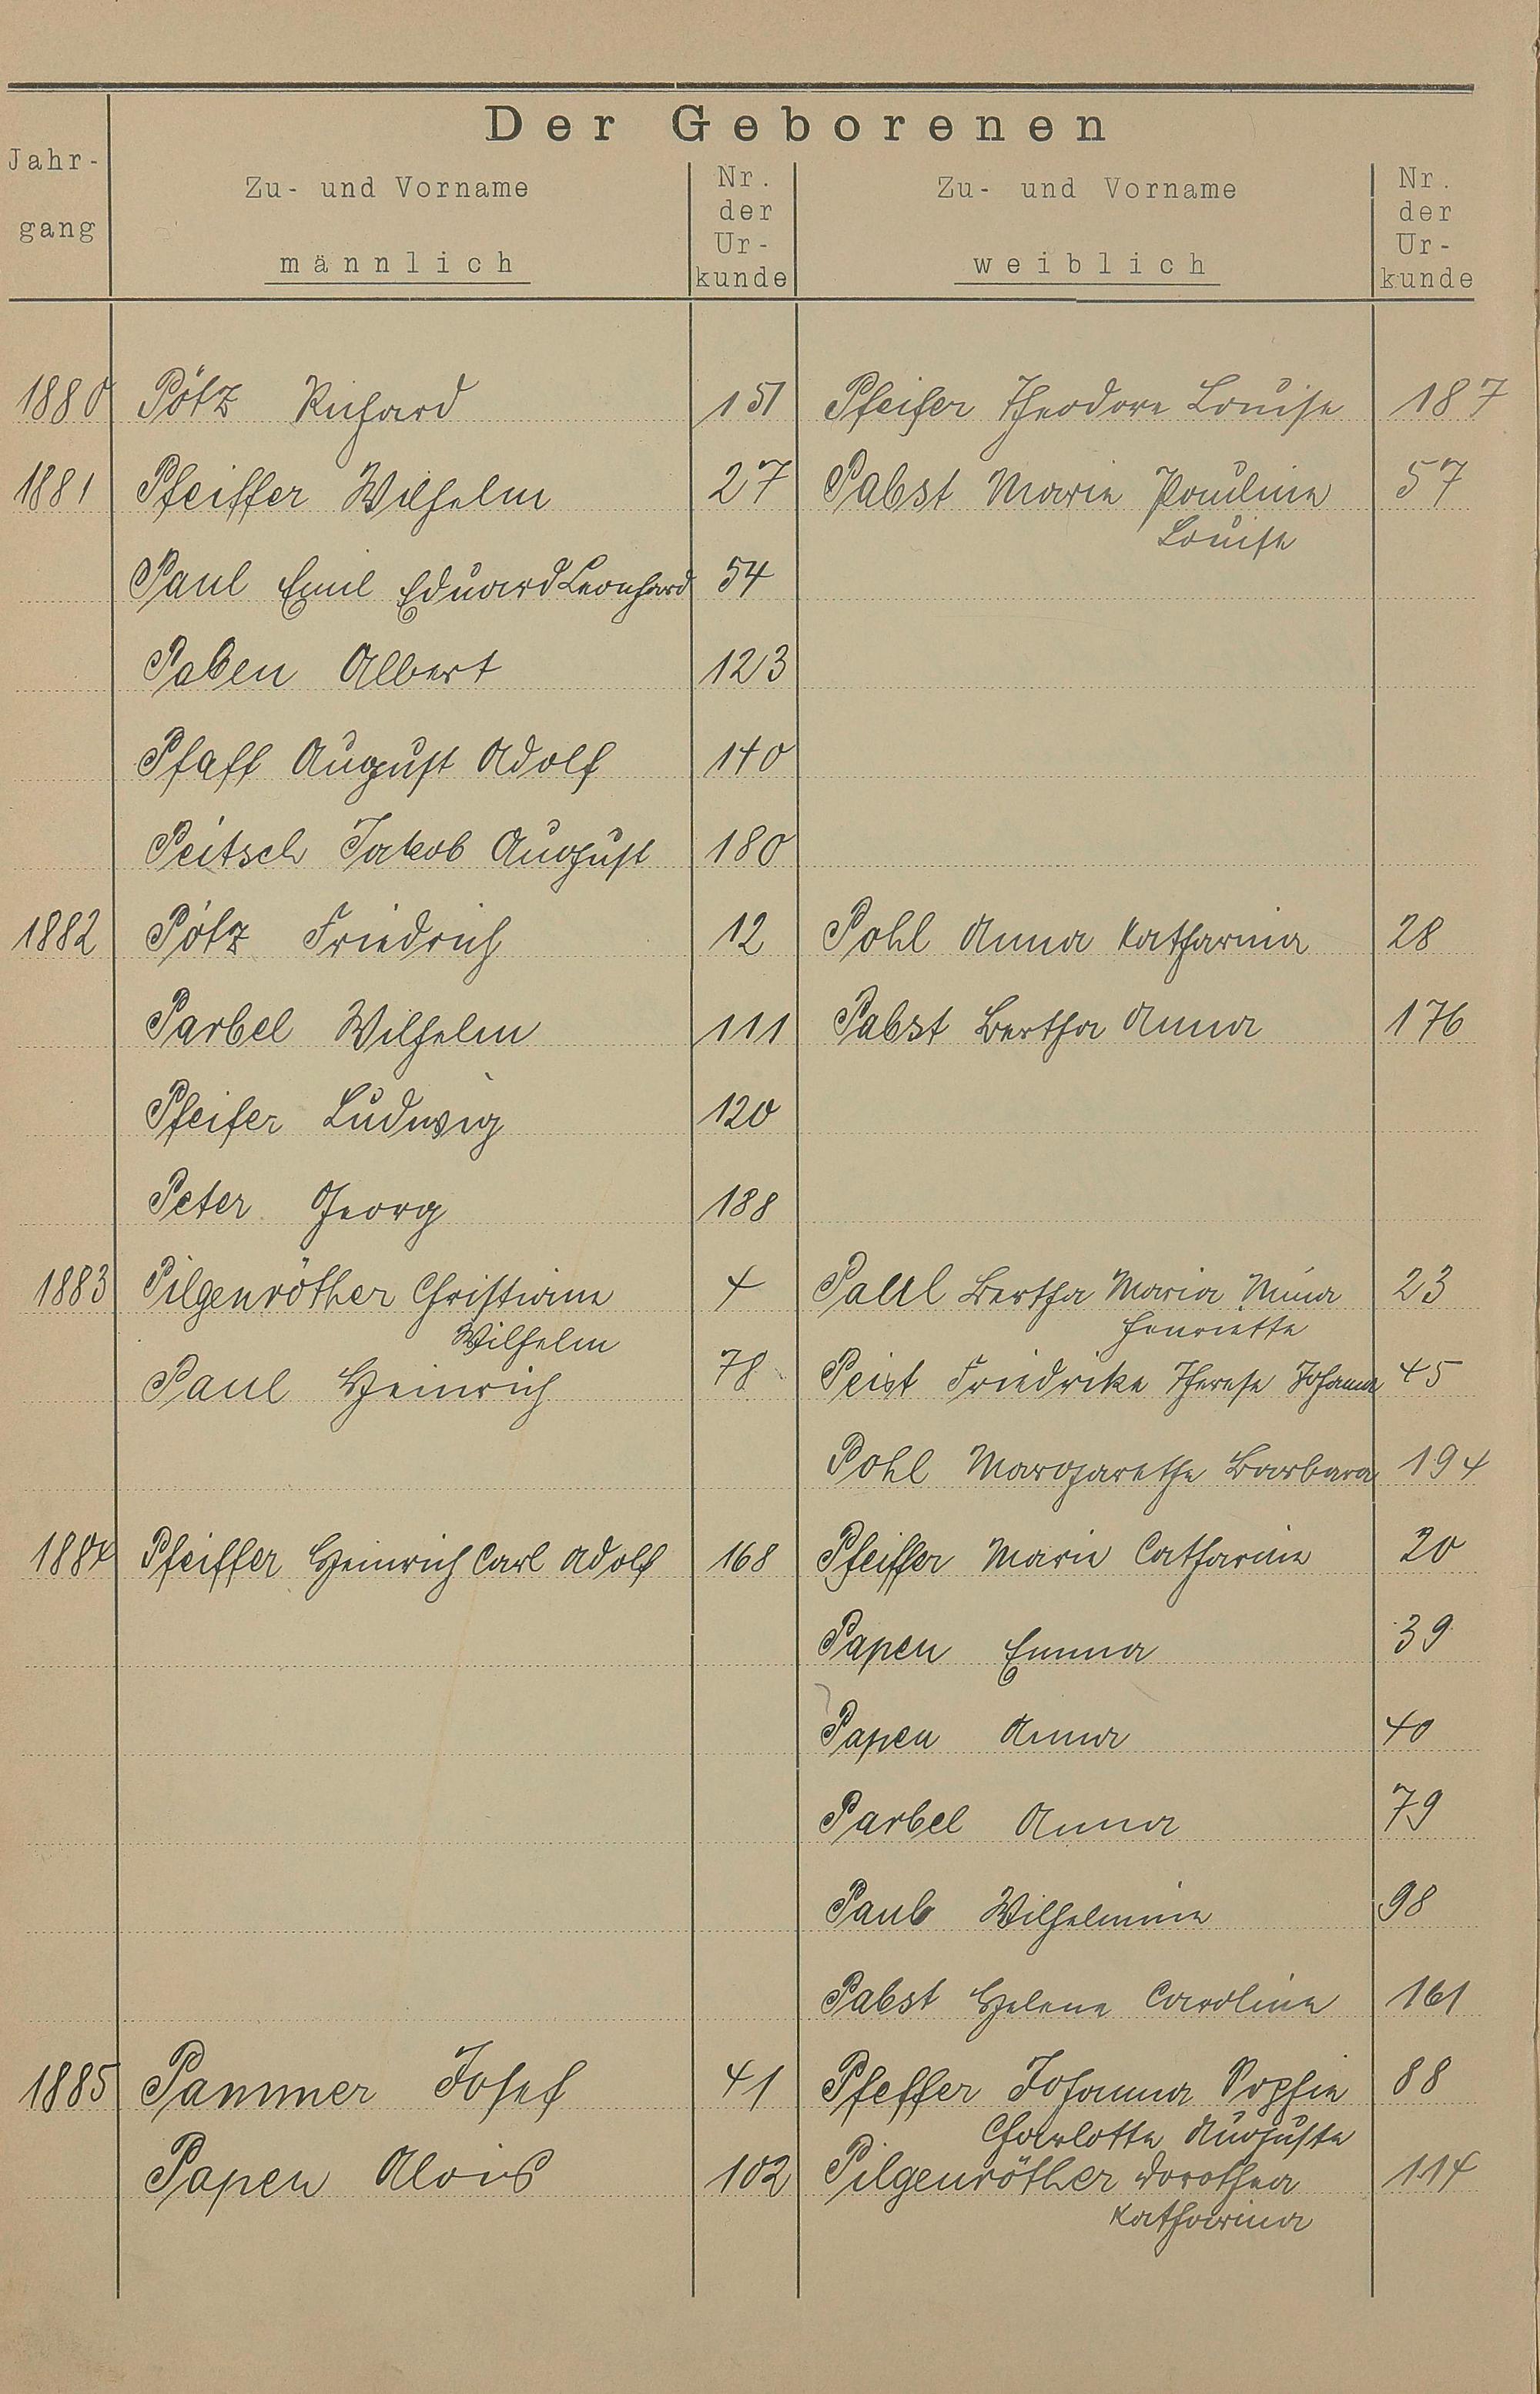 Der Geborenen
Jahr-
gang
Zu- und Vorname
männlich
Nr.
der
Ur-
kunde
Zu- und Vorname
weiblich
Nr.
der
Ur-
kunde
1880 Pötz Richard 151 Pfeifer Theodore Louise 187
1881 Pfeiffer Wilhelm 27 Pabst Marie Pauline 57
Louise
Paul Emil Eduard Leonhard 54
Paben Albert 123
Pfaff August Adolf 140
Peitsch Jakob August 180
1882 Pötz Friedrich 12 Pohl Anna Katharina 28
Parbel Wilhelm 111 Pabst Bertha Anna 176
Pfeifer Ludwig 120
Peter Georg 188
1883 Pilgenröther Christiane 4 Paul Bertha Maria Mina 23
Wilhelm Henriette
Paul Heinrich 78 Peist Friedrike Therese Johanna 45
Pohl Margarethe Barbara 194
1884 Pfeiffer Heinrich Carl Adolf 168 Pfeiffer Marie Catharine 20
Papen Emma 39
Papen Anna 40
Parbel Anna 79
Paub Wilhelmine 98
Pabst Helene Caroline 161
1885 Pammer Josef 41 Pfeffer Johanna Sophie 88
Charlotte Auguste
Papen Alois 102 Pilgenröther Dorothea 114
Katharina